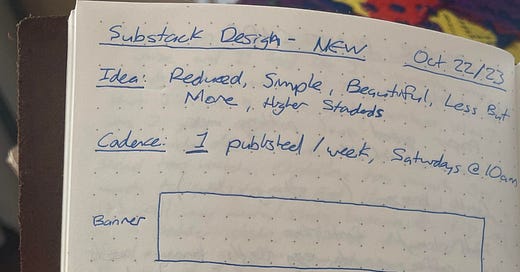 Substack Design - NEW
Oct 22/23
Idea: Reduced, Simple, Beautiful, Less But
More, Higher Standards
Cadence: 1 published / week, Saturdays @ 10am
Banner